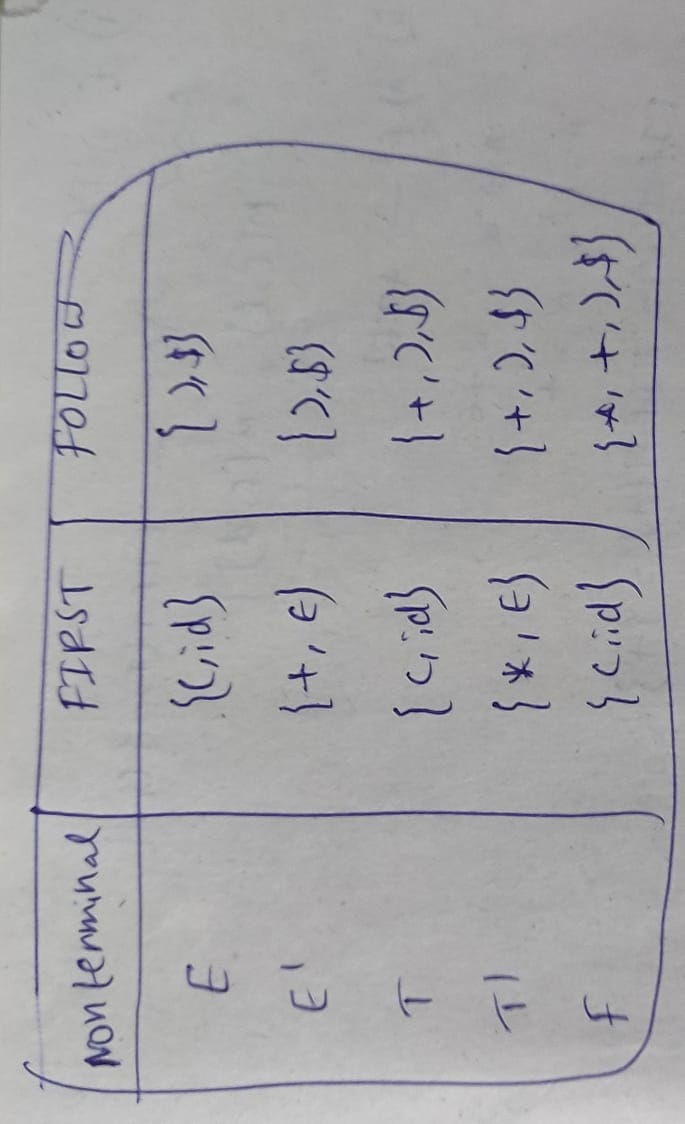 Nonterminal FIRST FOLLOW
E {(,id} { ),$}
E' {+, ∈} {),$}
T { (, id} {+, ),$}
T' {*, ∈} {+, ),$}
F { (,id} {*, +, ),$}